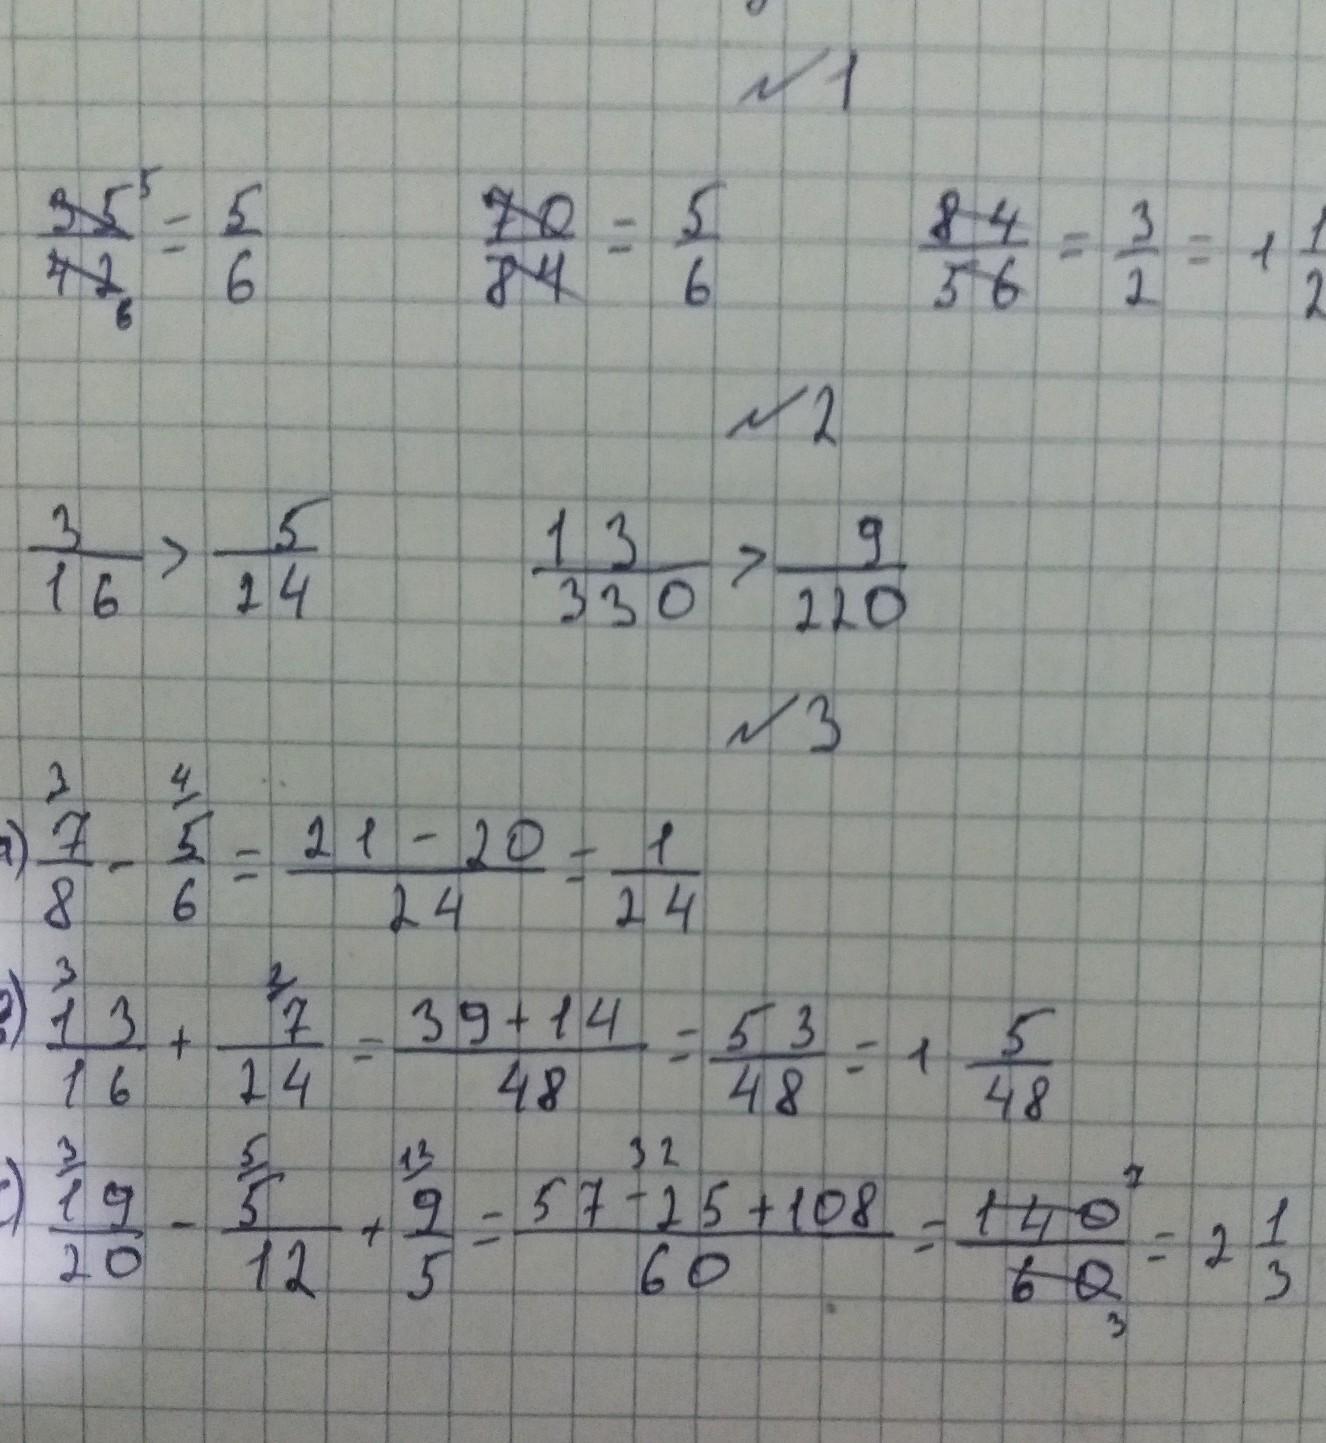 №1
35/42 5 6 = 5/6   70/84 = 5/6   84/56 = 3/2 = 1 1/2
№2
3/16 > 5/24   13/330 > 9/220
№3
3 4
7/8 - 5/6 = 21-20/24 = 1/24
3 2
13/16 + 7/24 = 39+14/48 = 53/48 = 1 5/48
3 5 32
19/20 - 5/12 + 9/5 = 57-25+108/60 = 140/60 7 3 = 2 1/3